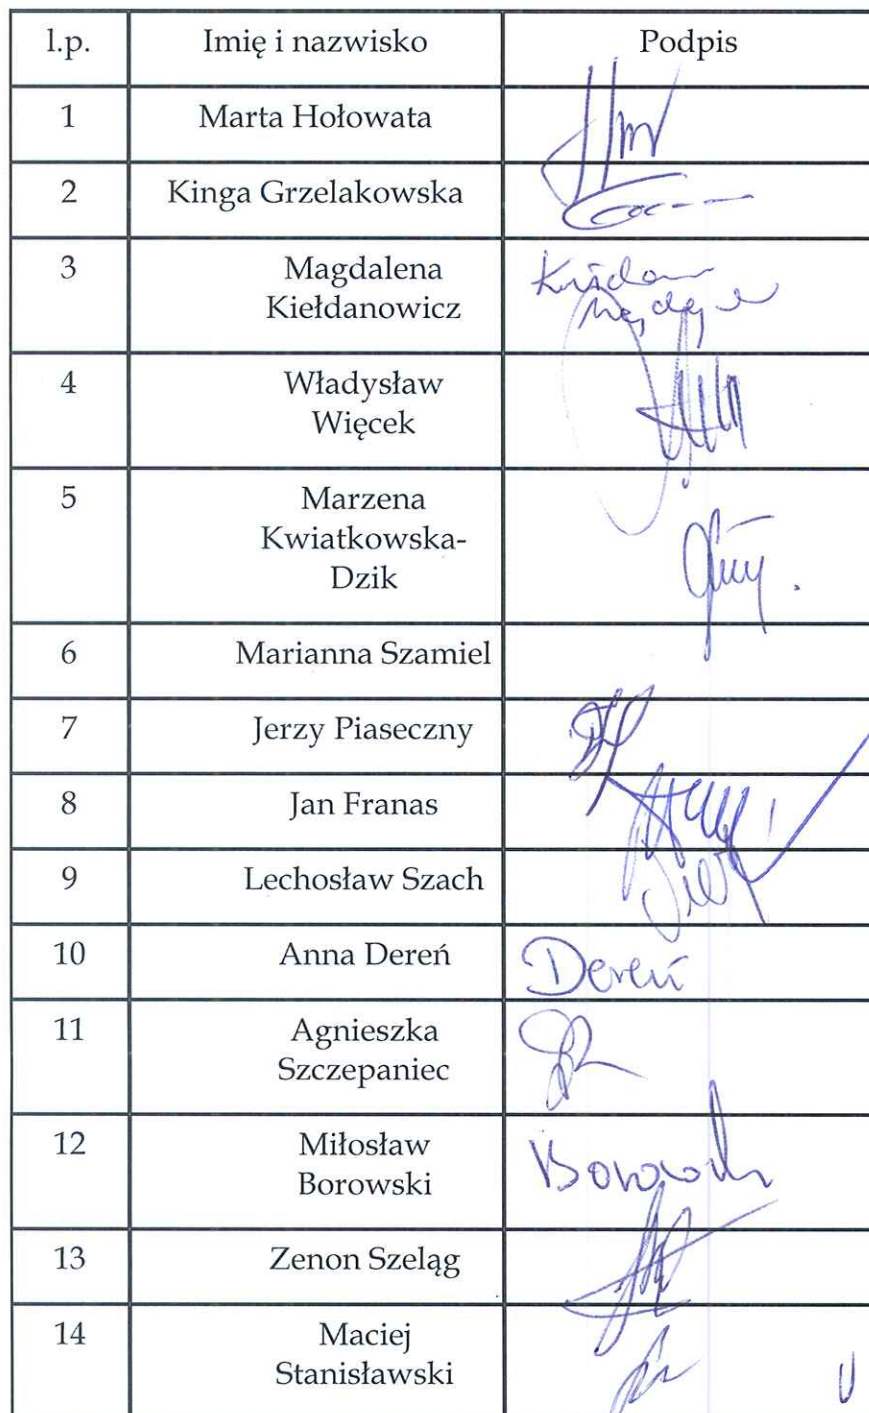 l.p. Imię i nazwisko Podpis
1 Marta Hołowata
2 Kinga Grzelakowska
3 Magdalena
Kiełdanowicz
4 Władysław
Więcek
5 Marzena
Kwiatkowska-
Dzik
6 Marianna Szamiel
7 Jerzy Piaseczny
8 Jan Franas
9 Lechosław Szach
10 Anna Dereń Dereń
11 Agnieszka
Szczepaniec
12 Miłosław
Borowski
13 Zenon Szeląg
14 Maciej
Stanisławski